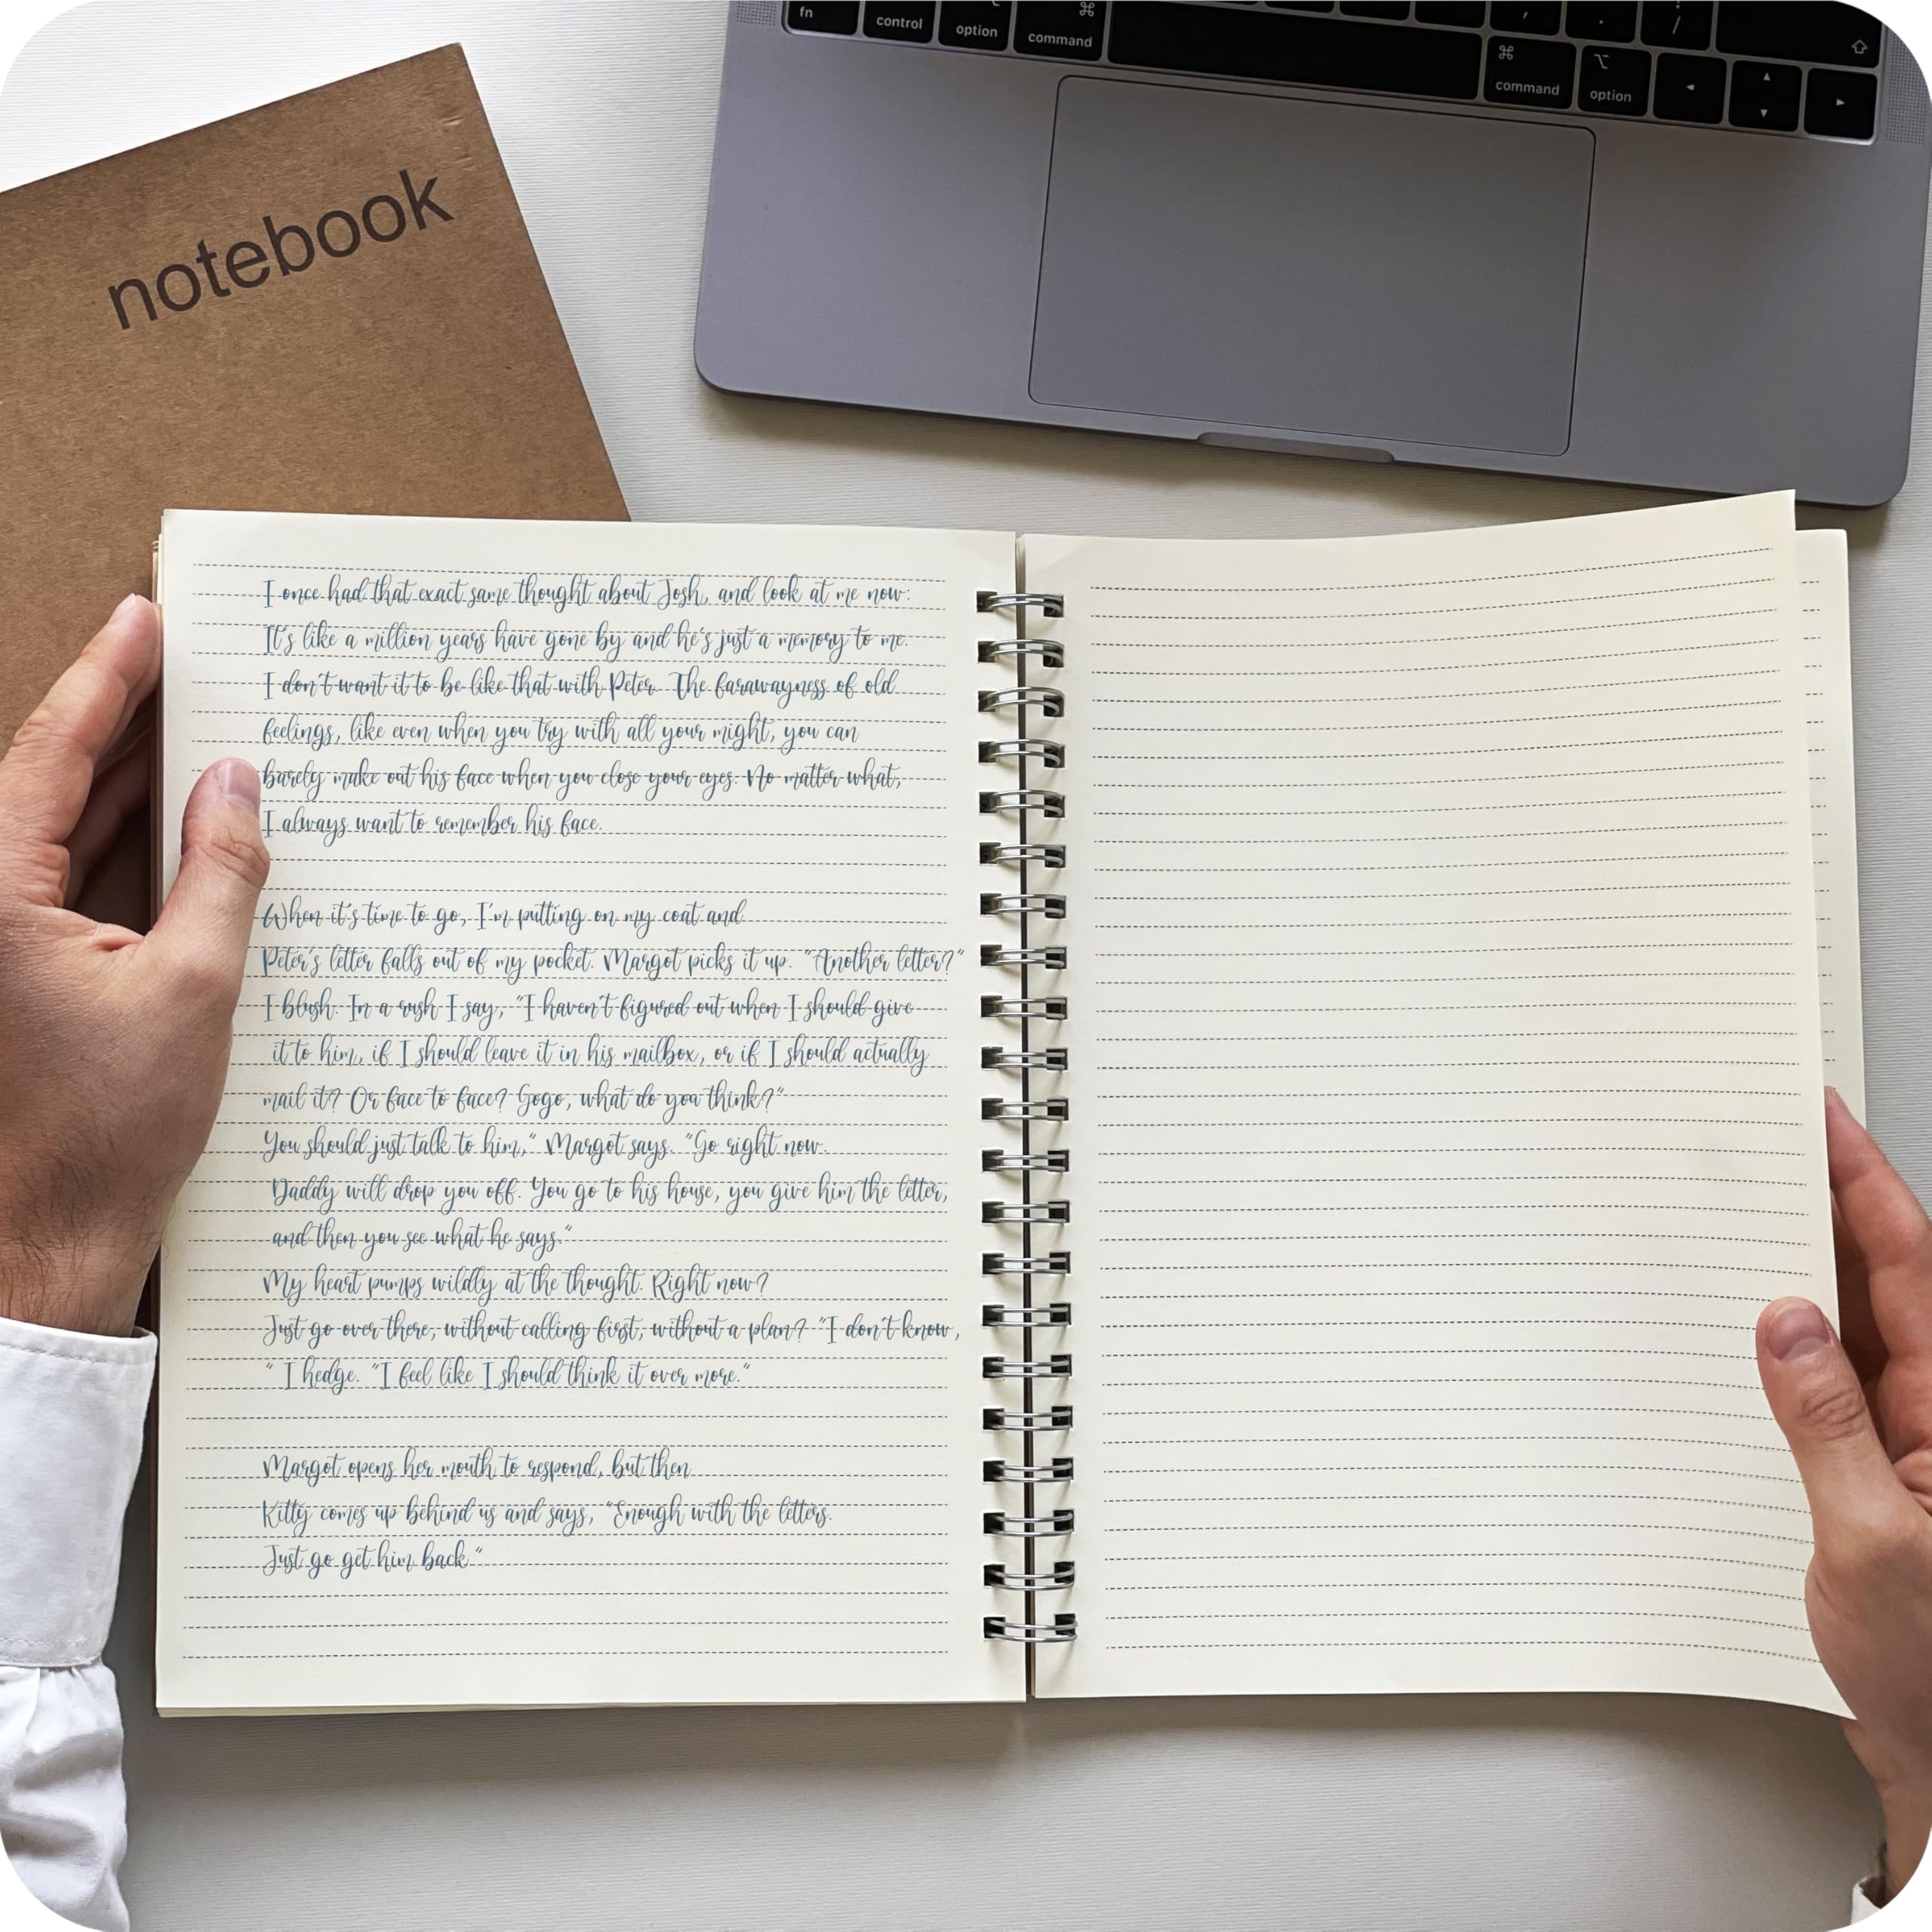 fn
control
option
⌘
command
⌘
command
⌥
option
notebook
I once had that exact same thought about Josh, and look at me now:
It's like a million years have gone by and he's just a memory to me.
I don't want it to be like that with Peter. The farawayness of old
feelings, like even when you try with all your might, you can
barely make out his face when you close your eyes. No matter what,
I always want to remember his face.
When it's time to go, I'm putting on my coat and
Peter's letter falls out of my pocket. Margot picks it up. "Another letter?"
I blush. In a rush I say, "I haven't figured out when I should give
it to him, if I should leave it in his mailbox, or if I should actually
mail it? Or face to face? Gogo, what do you think?"
You should just talk to him," Margot says. "Go right now.
Daddy will drop you off. You go to his house, you give him the letter,
and then you see what he says."
My heart pumps wildly at the thought. Right now?
Just go over there, without calling first, without a plan? "I don't know,
" I hedge. "I feel like I should think it over more."
Margot opens her mouth to respond, but then
Kitty comes up behind us and says, "Enough with the letters.
Just go get him back"